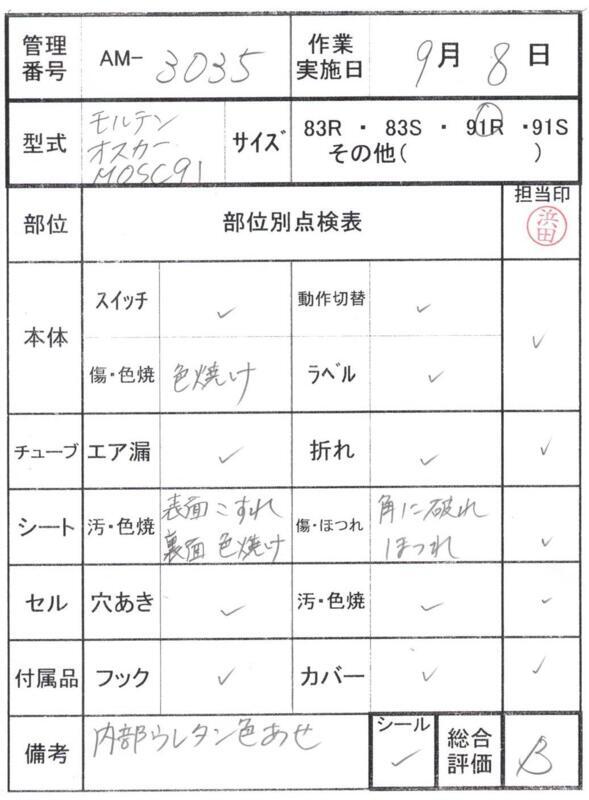 管理番号 AM- 3035 作業実施日 9月 8日
型式 モルテン オスカー MOSC91 サイズ 83R ・ 83S ・ 91R ・91S
その他( )
部位 部位別点検表 担当印 浜田
本体 スイッチ ✓ 動作切替 ✓ ✓
傷・色焼 色焼け ラベル ✓
チューブ エア漏 ✓ 折れ ✓ ✓
シート 汚・色焼 表面こすれ 裏面 色焼け 傷・ほつれ 角に破れ ほつれ ✓
セル 穴あき ✓ 汚・色焼 ✓ ✓
付属品 フック ✓ カバー ✓ ✓
備考 内部ウレタン色あせ シール ✓ 総合評価 B